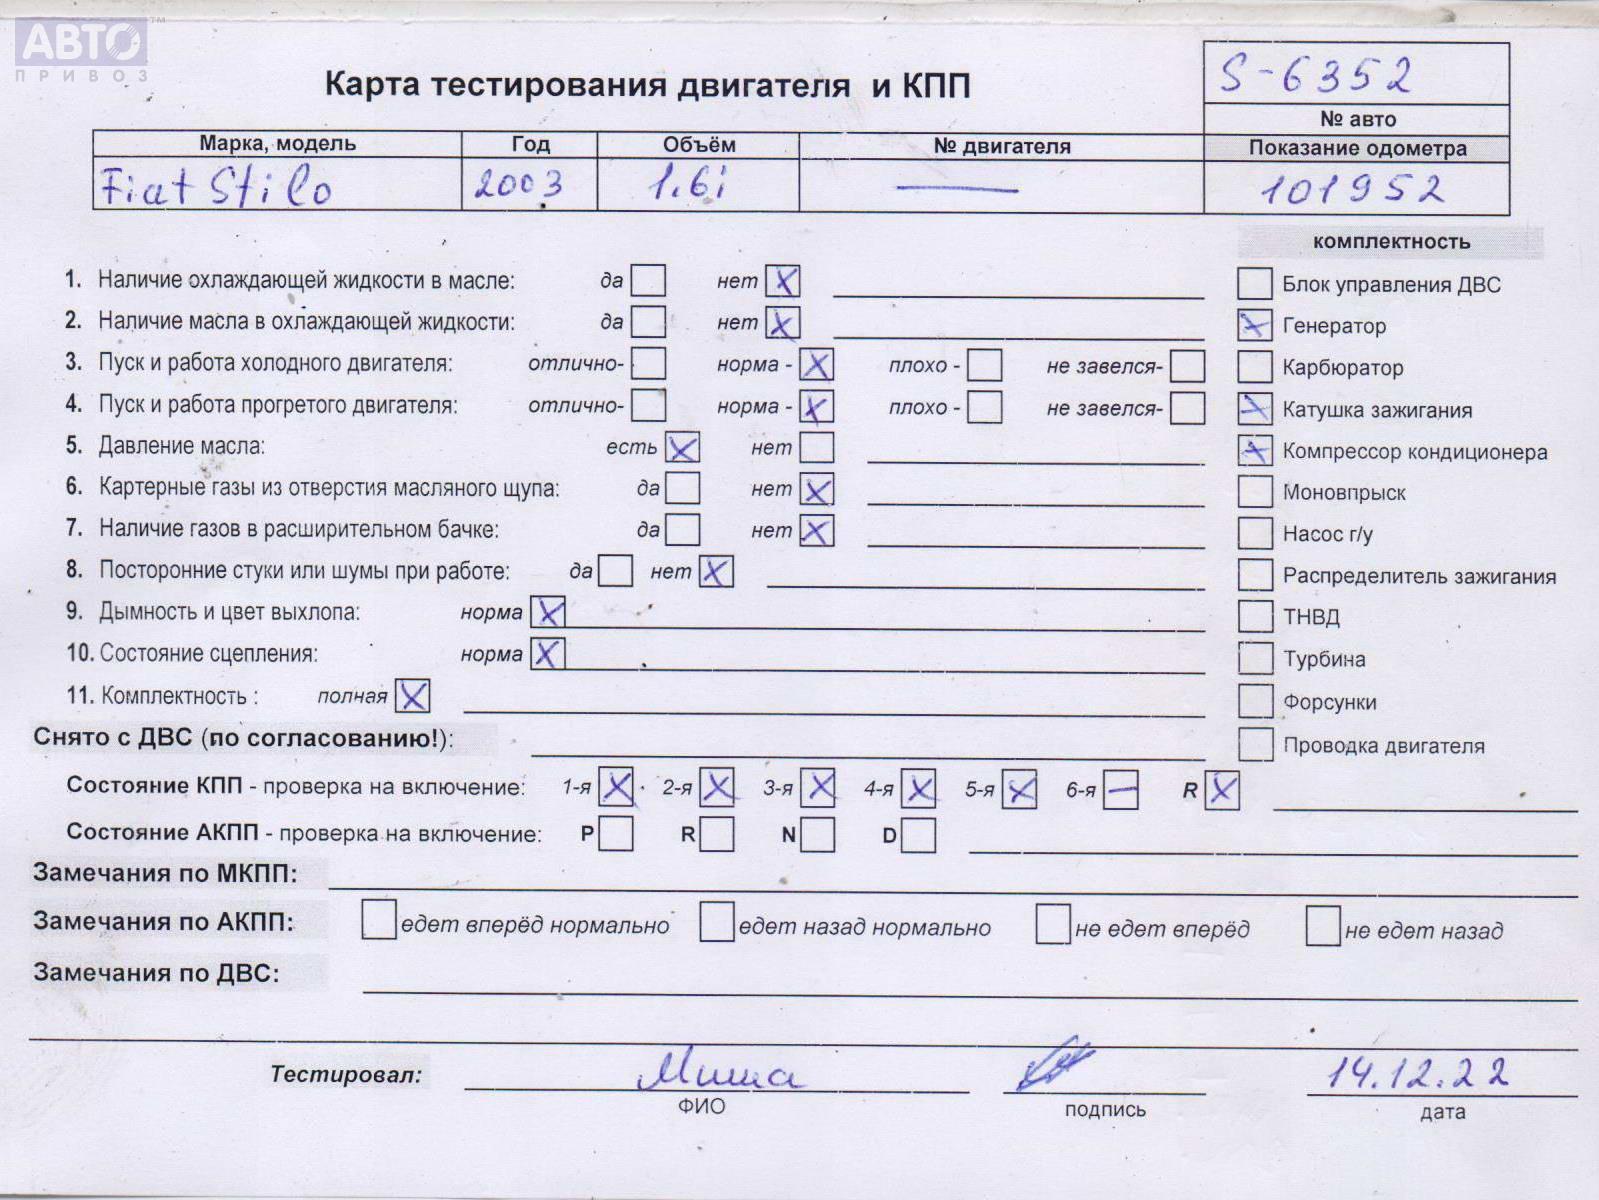 АВТО ™
ПРИВОЗ
Карта тестирования двигателя и КПП
S-6352
№ авто
Марка, модель Год Объём № двигателя Показание одометра
Fiat Stilo 2003 1.6i — 101952
комплектность
1. Наличие охлаждающей жидкости в масле: да нет X
Блок управления ДВС
2. Наличие масла в охлаждающей жидкости: да нет X
X Генератор
3. Пуск и работа холодного двигателя: отлично- норма - X плохо - не завелся-
Карбюратор
4. Пуск и работа прогретого двигателя: отлично- норма - X плохо - не завелся-
X Катушка зажигания
5. Давление масла: есть X нет
X Компрессор кондиционера
6. Картерные газы из отверстия масляного щупа: да нет X
Моновпрыск
7. Наличие газов в расширительном бачке: да нет X
Насос г/у
8. Посторонние стуки или шумы при работе: да нет X
Распределитель зажигания
9. Дымность и цвет выхлопа: норма X
ТНВД
10. Состояние сцепления: норма X
Турбина
11. Комплектность : полная X
Форсунки
Снято с ДВС (по согласованию!):
Проводка двигателя
Состояние КПП - проверка на включение: 1-я X 2-я X 3-я X 4-я X 5-я X 6-я — R X
Состояние АКПП - проверка на включение: P R N D
Замечания по МКПП:
Замечания по АКПП: едет вперёд нормально едет назад нормально не едет вперёд не едет назад
Замечания по ДВС:
Тестировал: Миша 14.12.22
ФИО подпись дата